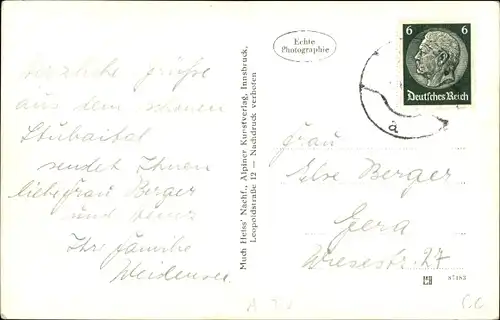 Herzliche Grüße
aus dem schönen
Stubaital
sendet Ihnen
liebe Frau Berger
und deren
Ihre Familie
Weidensee.
Much Heiss' Nachf., Alpiner Kunstverlag, Innsbruck,
Leopoldstraße 12 — Nachdruck verboten
Echte
Photographie
6 6
Deutsches Reich
a
Frau
Else Berger
Gera
Wiesestr. 27
87483